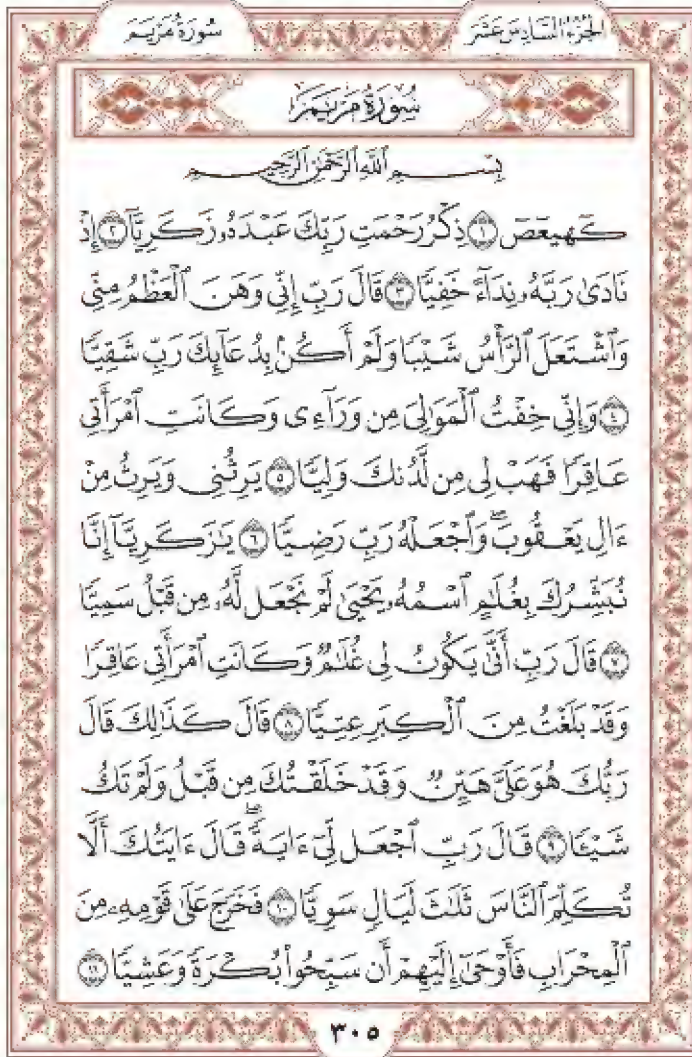 سُورَةُ مَرْيَمَ الجُزْءُ السَّادِسَ عَشَرَ
سُورَةُ مَرْيَمَ
بِسْمِ ٱللَّهِ ٱلرَّحْمَٰنِ ٱلرَّحِيمِ
كٓهيعٓصٓ ١ ذِكْرُ رَحْمَتِ رَبِّكَ عَبْدَهُۥ زَكَرِيَّآ ٢ إِذْ
نَادَىٰ رَبَّهُۥ نِدَآءً خَفِيًّا ٣ قَالَ رَبِّ إِنِّى وَهَنَ ٱلْعَظْمُ مِنِّى
وَٱشْتَعَلَ ٱلرَّأْسُ شَيْبًا وَلَمْ أَكُنۢ بِدُعَآئِكَ رَبِّ شَقِيًّا
٤ وَإِنِّى خِفْتُ ٱلْمَوَٰلِىَ مِن وَرَآءِى وَكَانَتِ ٱمْرَأَتِى
عَاقِرًا فَهَبْ لِى مِن لَّدُنكَ وَلِيًّا ٥ يَرِثُنِى وَيَرِثُ مِنْ
ءَالِ يَعْقُوبَ ۖ وَٱجْعَلْهُ رَبِّ رَضِيًّا ٦ يَٰزَكَرِيَّآ إِنَّا
نُبَشِّرُكَ بِغُلَٰمٍ ٱسْمُهُۥ يَحْيَىٰ لَمْ نَجْعَل لَّهُۥ مِن قَبْلُ سَمِيًّا
٧ قَالَ رَبِّ أَنَّىٰ يَكُونُ لِى غُلَٰمٌ وَكَانَتِ ٱمْرَأَتِى عَاقِرًا
وَقَدْ بَلَغْتُ مِنَ ٱلْكِبَرِ عِتِيًّا ٨ قَالَ كَذَٰلِكَ قَالَ
رَبُّكَ هُوَ عَلَىَّ هَيِّنٌ وَقَدْ خَلَقْتُكَ مِن قَبْلُ وَلَمْ تَكُ
شَيْـًٔا ٩ قَالَ رَبِّ ٱجْعَل لِّىٓ ءَايَةً ۚ قَالَ ءَايَتُكَ أَلَّا
تُكَلِّمَ ٱلنَّاسَ ثَلَٰثَ لَيَالٍ سَوِيًّا ١٠ فَخَرَجَ عَلَىٰ قَوْمِهِۦ مِنَ
ٱلْمِحْرَابِ فَأَوْحَىٰٓ إِلَيْهِمْ أَن سَبِّحُوا۟ بُكْرَةً وَعَشِيًّا ١١
٣٠٥